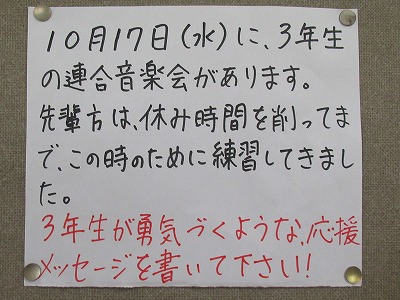 10月17日(水)に、3年生
の連合音楽会があります。
先輩方は、休み時間を削ってま
で、この時のために練習してきまし
た。
3年生が勇気づくような、応援
メッセージを書いて下さい!